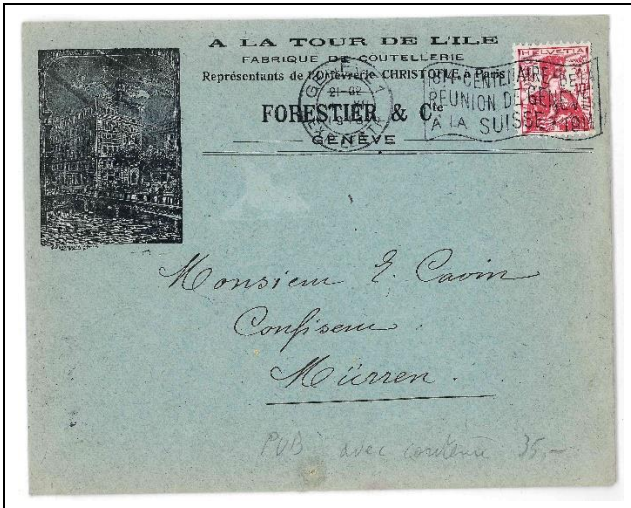 A LA TOUR DE L'ILE
FABRIQUE DE COUTELLERIE
Représentants de l'Orfèvrerie CHRISTOFLE à Paris
FORESTIER & Cie
GENÈVE
HELVETIA
CENTENAIRE DE LA
RÉUNION DE GENÈVE
A LA SUISSE
Monsieur E. Cavin
Confiseur
Mürren.
PUB avec contenu 35.-